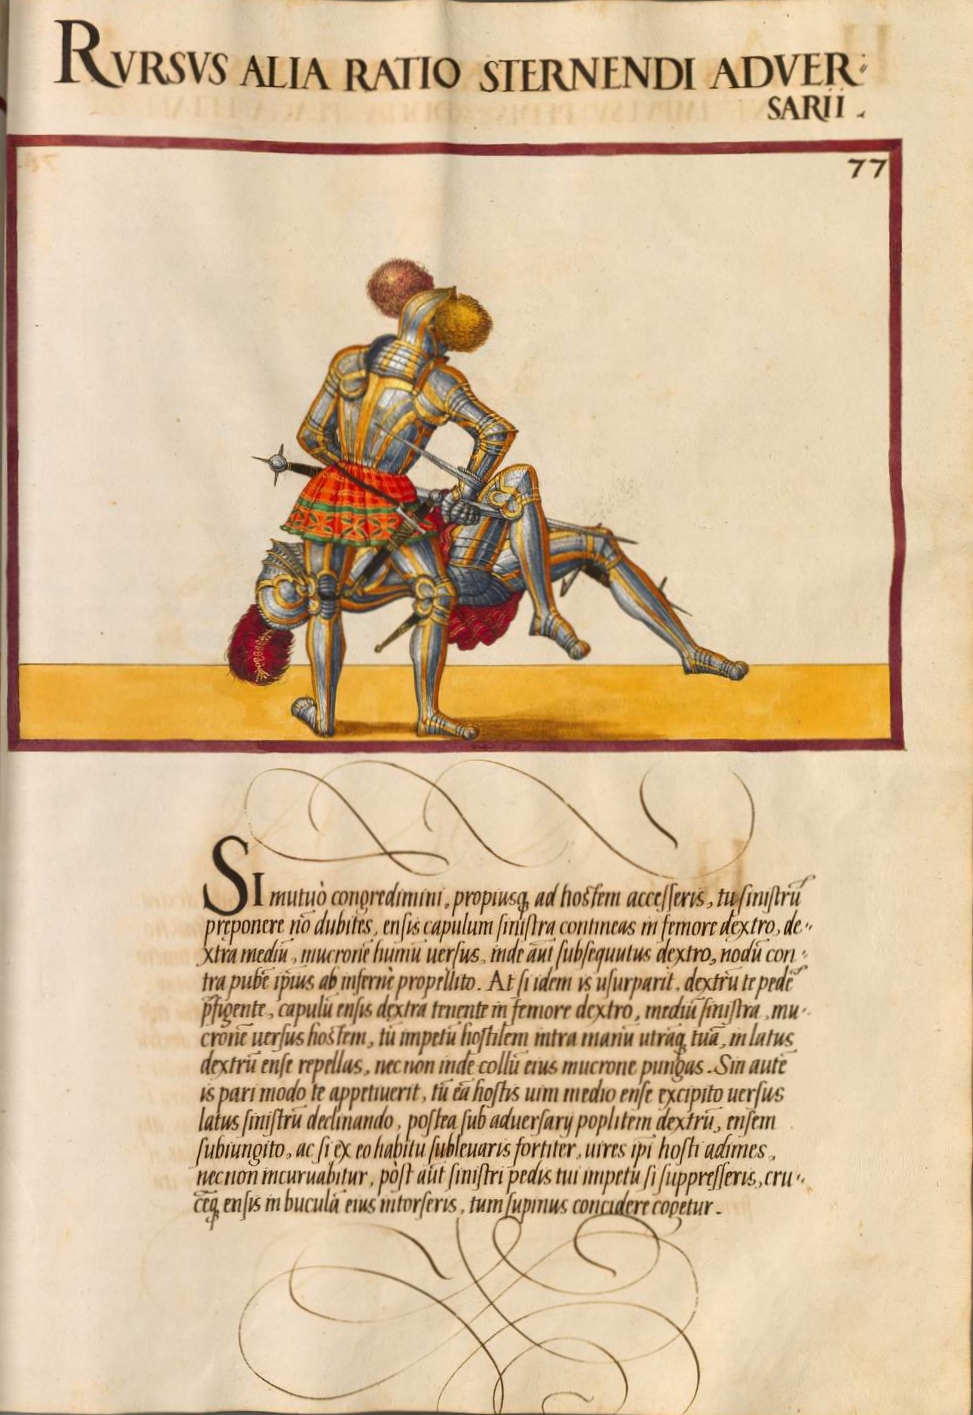 RVRSVS ALIA RATIO STERNENDI ADVER⸗
SARII .
77
SI mutuò congredimini, propiusq, ad hostem accesseris, tu sinistrũ
preponere nõ dubites, ensis capulum sinistra contineas in femore dextro, de⸗
xtra mediũ, mucrone humũ uersus, inde aũt subsequutus dextro, nodũ con⸗
tra pubẽ ipsius ab infernè propellito. At si idem is usurparit, dextrũ te pedẽ
p̃figente, capulũ ensis dextra tenente in femore dextro, mediũ sinistra, mu⸗
cronẽ uersus hostem, tũ impetũ hostilem intra manũ utrãq, tuã, in latus
dextrũ ense repellas, nec non inde collũ eius mucrone pungas. Sin autẽ
is pari modo te appetiuerit, tũ eã hostis uim medio ense excipito uersus
latus sinistrũ declinando, postea sub aduersarÿ poplitem dextrũ, ensem
subiungito, ac si ex eo habitu subleuaris fortiter, uires ipi hosti adimes,
nec non incuruabitur, pòst aũt sinistri pedis tui impetu si suppresseris, cru⸗
cẽq, ensis in buculã eius intorseris, tum supinus concidere cogetur.